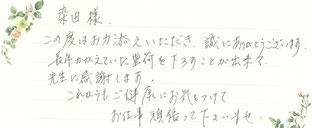 染田 様、
この度はお力添えいただき、誠にありがとうございます。
長年かかえていた重荷を下ろすことが出来て、
先生に感謝します。
これからもご健康にお気をつけて
お仕事頑張って下さいませ。